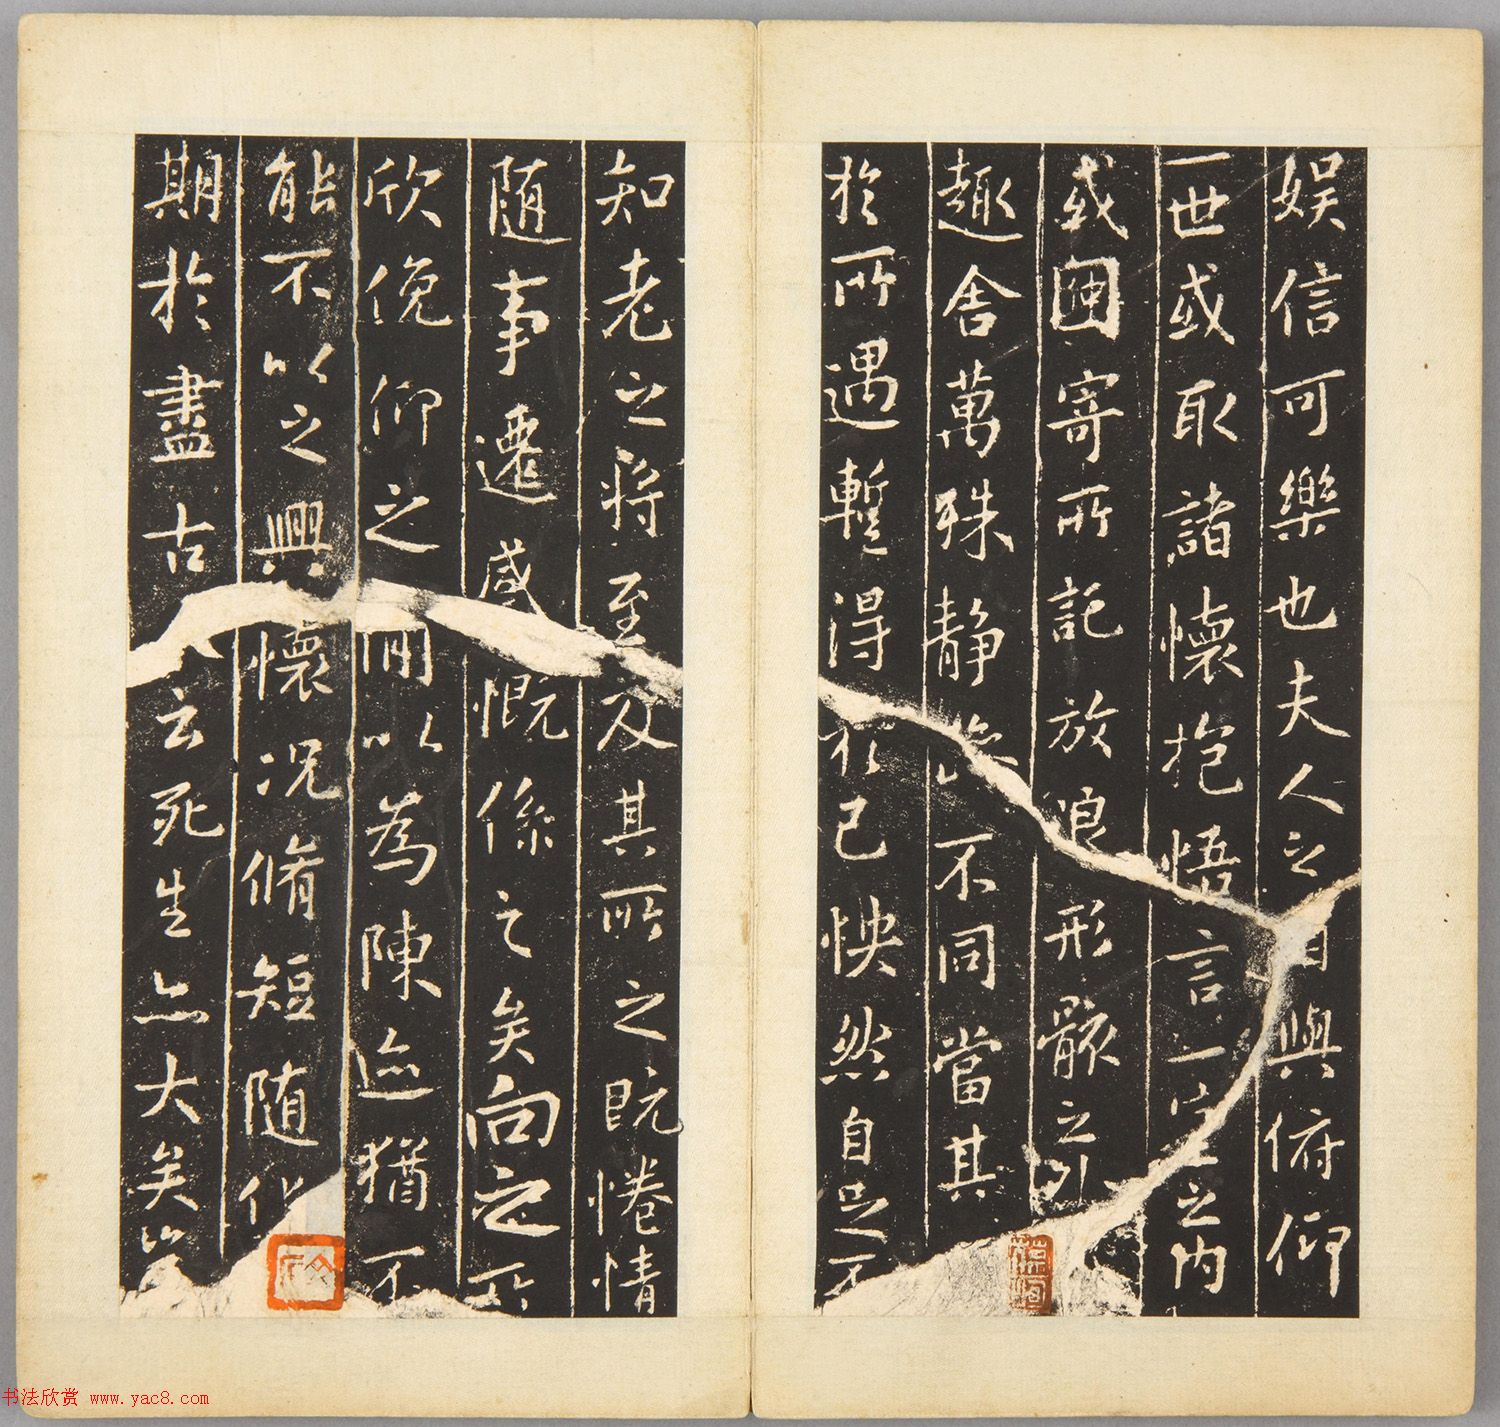 娱信可樂也夫人之相與俯仰
一世或取諸懷抱悟言一室之内
或因寄所託放浪形骸之外
趣舍萬殊静躁不同當其欣
於所遇蹔得於己怏然自足不
知老之將至及其所之既惓情
随事遷感慨係之矣向之所
欣俛仰之間以為陳迹猶不
能不以之興懷況脩短随化
期於盡古人云死生亦大矣豈
书法欣赏 www.yac8.com